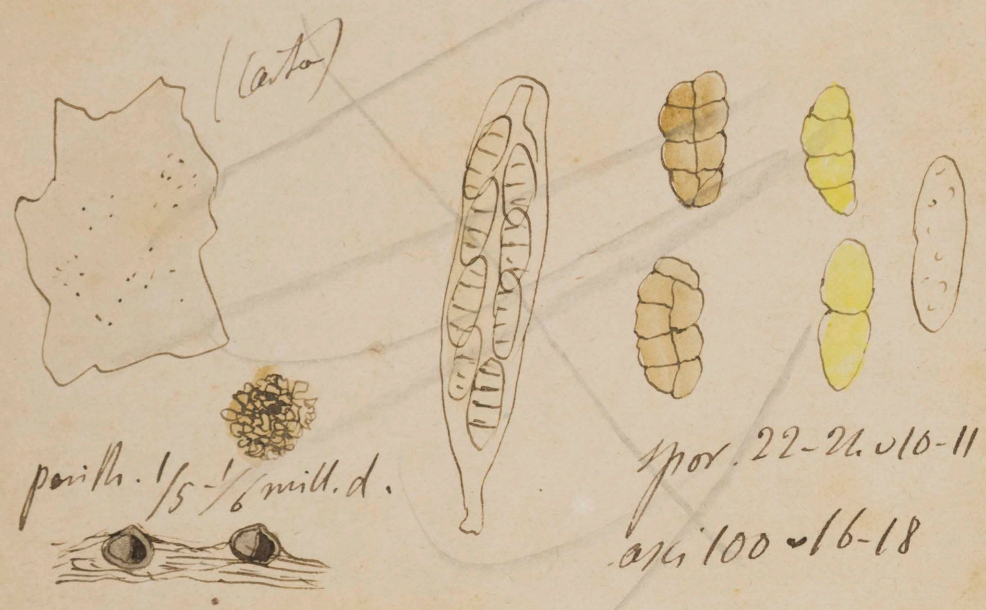 (Carta)
perith. 1/5-1/6 mill. d.
spor. 22-24 ⌣ 10-11
asci 100 ⌣ 16-18